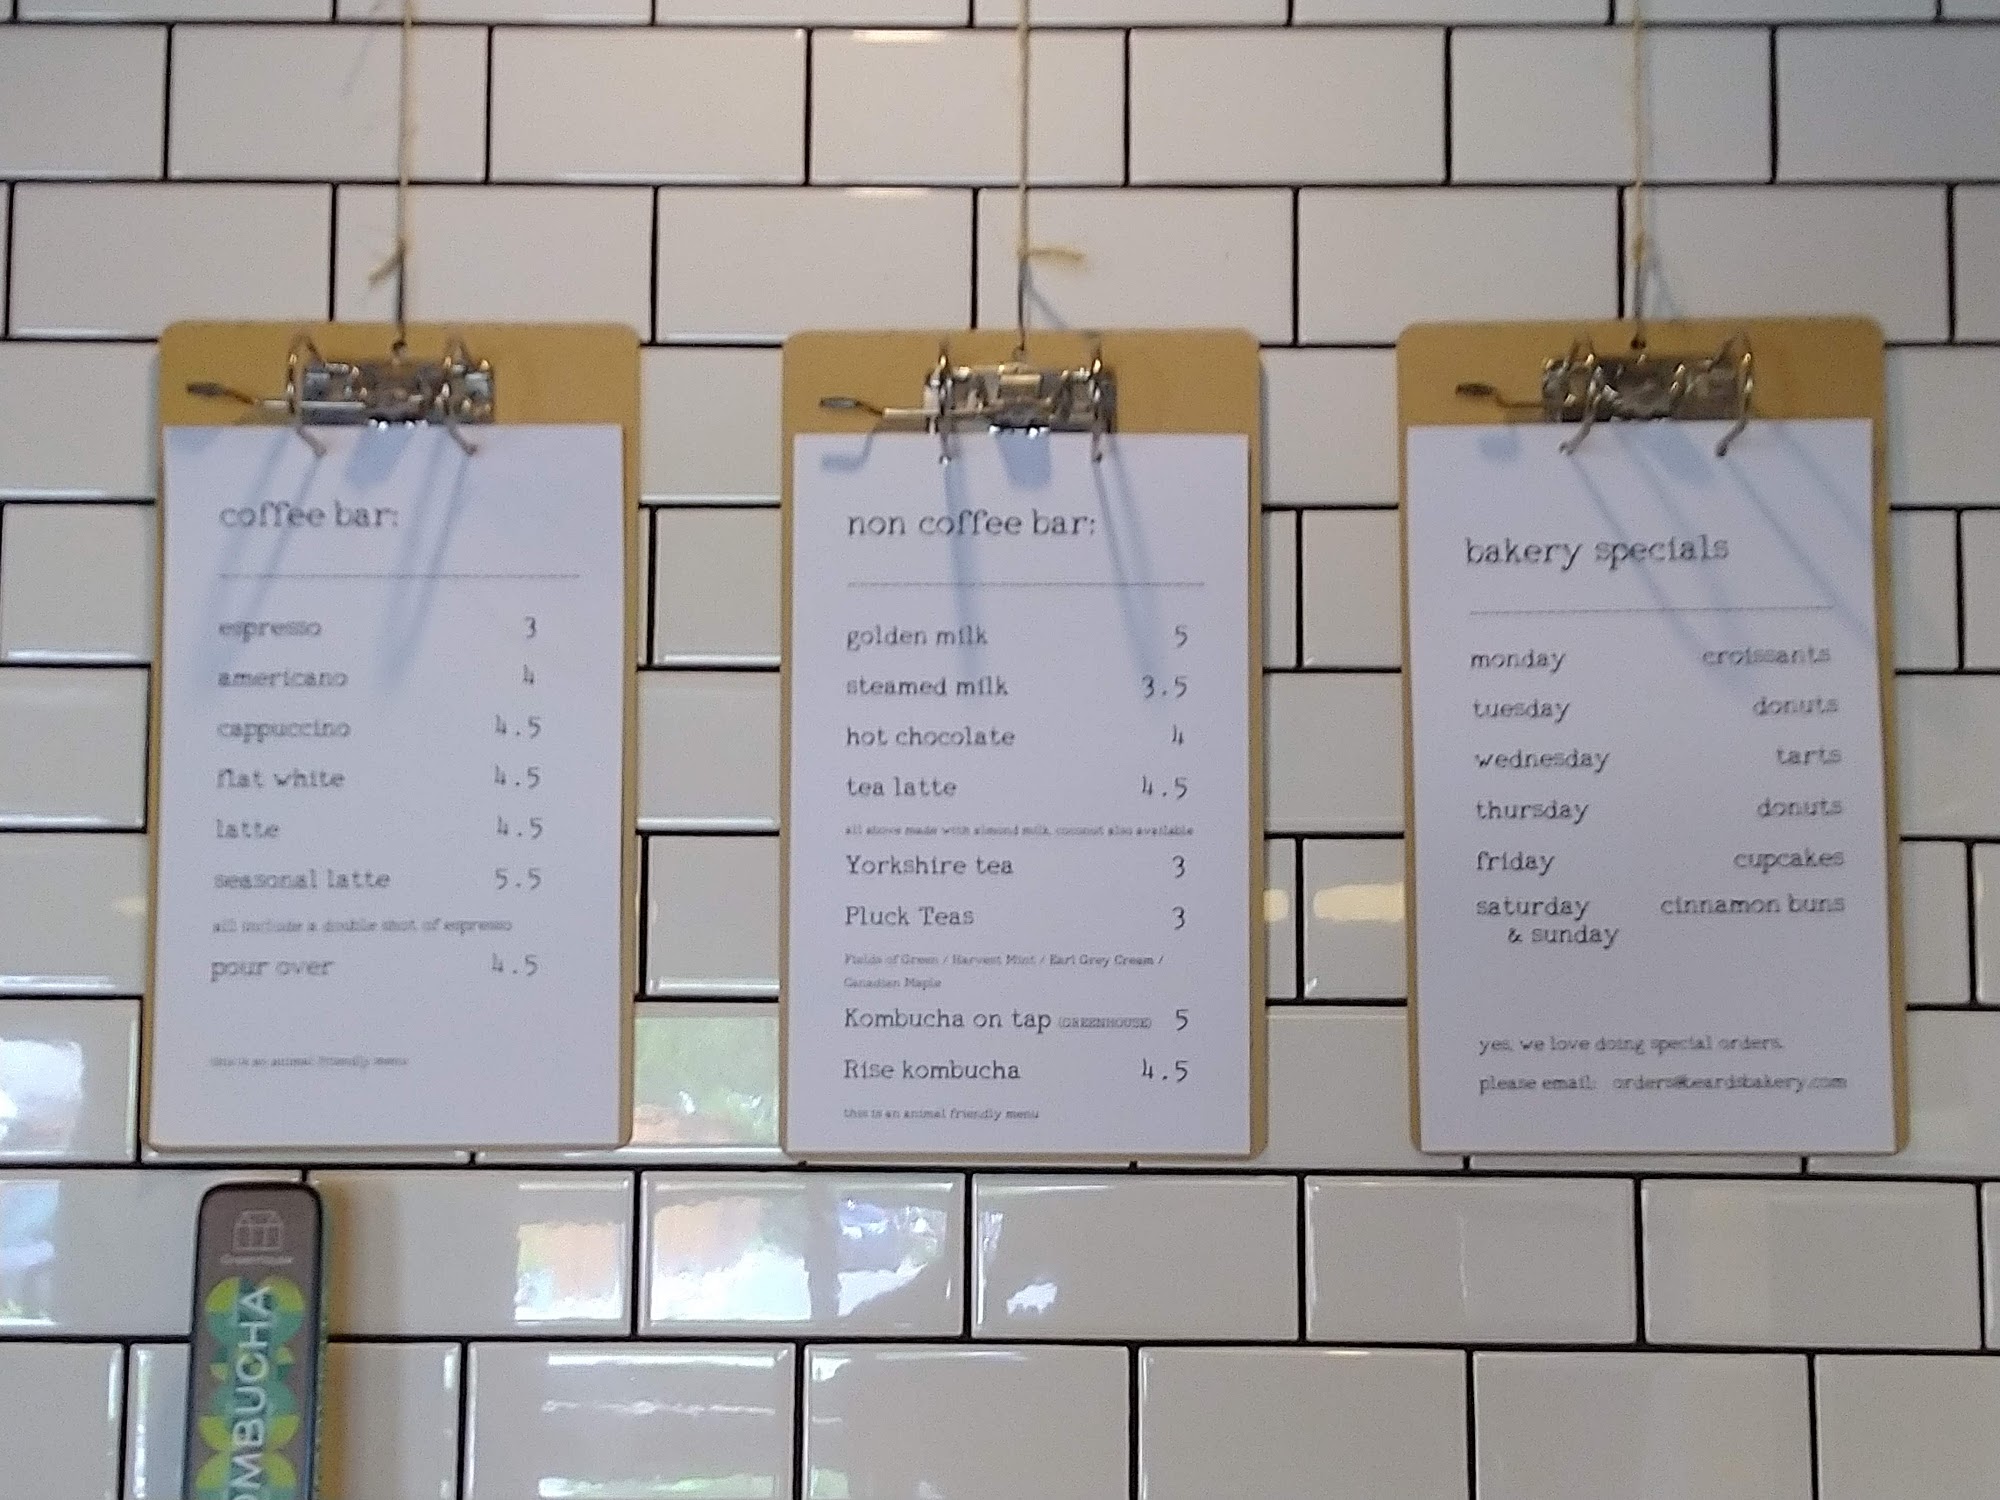 coffee bar:
espresso 3
americano 4
cappuccino 4.5
flat white 4.5
latte 4.5
seasonal latte 5.5
all include a double shot of espresso
pour over 4.5
this is an animal friendly menu
non coffee bar:
golden milk 5
steamed milk 3.5
hot chocolate 4
tea latte 4.5
all above made with almond milk, coconut also available
Yorkshire tea 3
Pluck Teas 3
Fields of Green / Harvest Mint / Earl Grey Cream /
Canadian Maple
Kombucha on tap (GREENHOUSE) 5
Rise kombucha 4.5
this is an animal friendly menu
bakery specials
monday croissants
tuesday donuts
wednesday tarts
thursday donuts
friday cupcakes
saturday cinnamon buns
& sunday
yes, we love doing special orders.
please email: orders@beardsbakery.com
Greenhouse
OMBUCHA